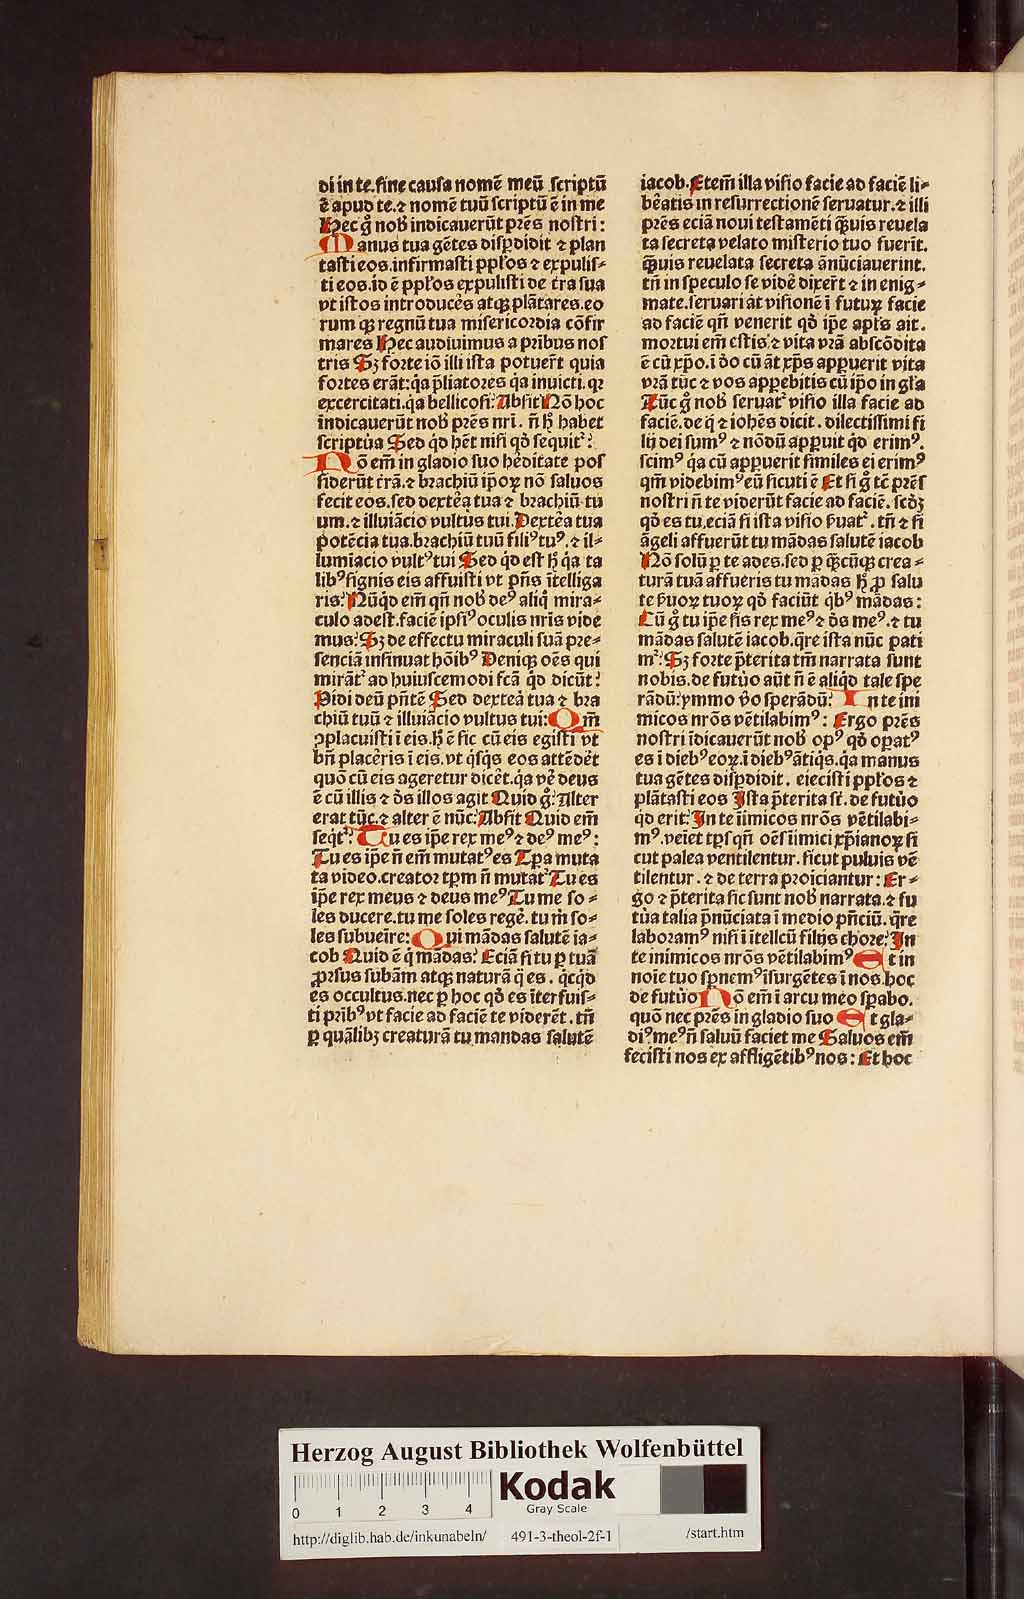 di in te. sine causa nomē meū scriptū
ē apud te. ⁊ nomē tuū scriptū ē in me
Hec gͦ nob̓ indicauerūt p̄res nostri:
Manus tua gētes disꝑdidit ⁊ plan
tasti eos. infirmasti ppl̓os ⁊ expulis⸗
ti eos. id ē ppl̓os expulisti de t̓ra sua
vt istos introducēs atqꝫ plātares. eo
rum qꝫ regnū tua misericordia cōfir
mares Hec audiuimus a pribus nos
tris Sꝫ forte iō illi ista potuer̄t quia
fortes erāt: q̇a p̄liatores q̇a inuicti. qꝛ
excercitati. q̇a bellicosi: Absit Nō hoc
indicauerūt nob̓ p̄res nr̄i. n̄ hͦ habet
scriptu̇a Sed qd̓ hēt nisi qd̓ sequit᷑:
Nō em̄ in gladio suo he̓ditate pos
siderūt t̓rā. ⁊ brachiū ip̄oꝝ nō saluos
fecit eos. sed dexte̓a tua ⁊ brachiū tu
um. ⁊ illuiācio vultus tui. Dexte̓a tua
potēcia tua. brachiū tuū filiꝰ tuꝰ. ⁊ il⸗
lumiacio vultꝰ tui Sed qd̓ est hͦ q̇a ta
libꝰ signis eis affuisti vt p̄ns ītelliga
ris: Nūqd̓ em̄ qn̄ nob̓ deꝰ aliq̇ mira⸗
culo adest. faciē ip̄siꝰ oculis nr̄is vide
mus: Sꝫ de effectu miraculi suā pre⸗
senciā insinuat hōibꝰ Deniqꝫ oēs qui
mirāt᷑ ad huiuscemodi fcā qd̓ dicūt:
Vidi deū p̄ntē Sed dexte̓a tua ⁊ bra
chiū tuū ⁊ illuiācio vultus tui: Qm̄
ꝯplacuisti ī eis. hͦ ē sic cū eis egisti vt
bn̄ placēris ī eis. vt q̇sq̇s eos attēdēt
quō cū eis ageretur dicēt. q̇a ve̓ deus
ē cū illis ⁊ d̄s illos agit Quid gͦ: Alter
erat tūc. ⁊ alter ē nūc: Absit Quid em̄
seqt᷑: Tu es ip̄e rex meꝰ ⁊ deꝰ meꝰ:
Tu es ip̄e n̄ em̄ mutatꝰ es Tꝑa muta
ta video. creator tꝑm n̄ mutat᷑ Tu es
ip̄e rex meus ⁊ deus meꝰ Tu me so⸗
les ducere. tu me soles rege̓. tu m̄ so⸗
les subueīre: Qui mādas salutē ia⸗
cob Quid ē q̇ mādas: Eciā si tu ꝑ tuā
ꝓrsus subām atqꝫ naturā q̇ es. qcqd̓
es occultus. nec ꝑ hoc qd̓ es īterfuis⸗
ti pribꝰ vt facie ad faciē te viderēt. tn̄
ꝑ quālibꝫ creaturā tu mandas salutē
iacob. Etem̄ illa visio facie ad faciē li⸗
be̓atis in resurrectionē seruatur. ⁊ illi
p̄res eciā noui testamēti qᷓuis reuela
ta secreta velato misterio tuo fuer̄it.
qᷓuis reuelata secreta ānūciauerint.
tn̄ in speculo se vide̓ dixer̄t ⁊ in enig⸗
mate. seruari āt visionē ī futuꝝ facie
ad faciē qn̄ venerit qd̓ ip̄e apl̓s ait.
mortui em̄ estis ⁊ vita vr̄a abscōdita
ē cū xp̄o. ī dō cū āt xp̄s apparuerit vita
vr̄a tūc ⁊ vos apparebitis cū ip̄o in gl̓a
Tūc gͦ nob̓ seruat᷑ visio illa facie ad
faciē. de q̇ ⁊ iohēs dicit. dilectissimi fi
lij dei sumꝰ ⁊ nōdū apparuit qd̓ erimꝰ.
scimꝰ q̇a cū apparuerit similes ei erimꝰ
qm̄ videbimꝰ eū sicuti ē Et si gͦ tc̄ p̄res
nostri n̄ te viderūt facie ad faciē. scd̓ꝫ
qd̓ es tu. eciā si ista visio ẜuat᷑. tn̄ ⁊ si
āgeli affuerūt tu mādas salutē iacob
Nō solū ꝑ te ades. sed ꝑ qᷓcūqꝫ crea⸗
turā tuā affueris tu mādas hͦ ꝓ salu
te ẜuoꝝ tuoꝝ qd̓ faciūt q̇bꝰ mādas:
Cū gͦ tu ip̄e sis rex meꝰ ⁊ d̄s meꝰ. ⁊ tu
mādas salutē iacob. qr̄e ista nūc pati
m᷑: Sꝫ forte p̄terita tm̄ narrata sunt
nobis. de futu̇o aūt n̄ ē aliqd̓ tale spe
rādū: ymmo vo̓ sperādū: In te ini
micos nr̄os vētilabimꝰ: Ergo p̄res
nostri īdicauerūt nob̓ opꝰ qd̓ opatꝰ
es ī diebꝰ eoꝝ. ī diebꝰ ātiq̇s. q̇a manus
tua gētes disꝑdidit. eiecisti ppl̓os ⁊
plātasti eos Ista p̄terita st̄. de futu̇o
qd̓ erit: In te īimicos nr̄os vētilabi⸗
mꝰ. veiet tꝑs qn̄ oēs īimici xp̄ianoꝝ si
cut palea ventilentur. sicut puluis vē
tilentur. ⁊ de terra proiciantur: Er⸗
go ⁊ p̄terita sic sunt nob̓ narrata. ⁊ fu
tu̇a talia p̄nūciata ī medio p̄nciū. qr̄e
laboramꝰ nisi ī ītellcū filijs chore: In
te inimicos nr̄os vētilabimꝰ Et in
noīe tuo sꝑnemꝰ īsurgētes ī nos. hoc
de futu̇o Nō em̄ ī arcu meo sꝑabo.
quō nec p̄res in gladio suo Et gla⸗
diꝰ meꝰ n̄ saluū faciet me Saluos em̄
fecisti nos ex affligētibꝰ nos: Et hoc
Herzog August Bibliothek Wolfenbüttel
0 1 2 3 4
Kodak
Gray Scale
http://diglib.hab.de/inkunabeln/ 491-3-theol-2f-1 /start.htm